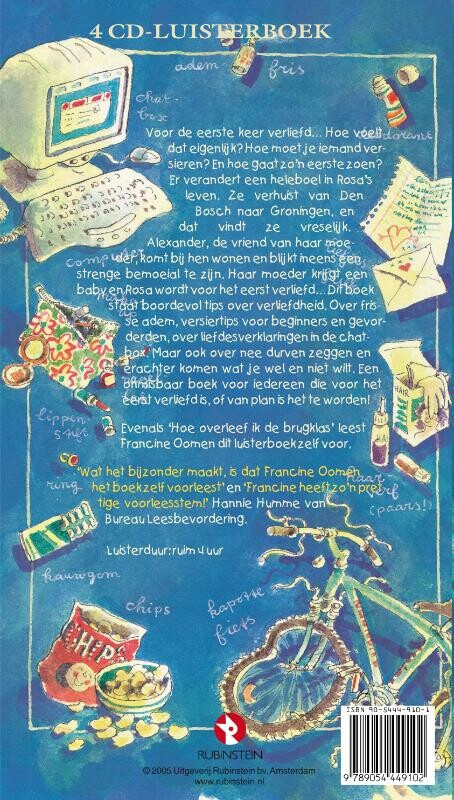 4 CD-LUISTERBOEK
adem-
fris
chat-
box
deodorant
Voor de eerste keer verliefd... Hoe voelt
dat eigenlijk? Hoe moet je iemand ver-
sieren? En hoe gaat zo'n eerste zoen?
Er verandert een heleboel in Rosa's
leven. Ze verhuist van Den
Bosch naar Groningen, en
dat vindt ze vreselijk.
Alexander, de vriend van haar moe-
der, komt bij hen wonen en blijkt ineens een
strenge bemoeial te zijn. Haar moeder krijgt een
baby en Rosa wordt voor het eerst verliefd... Dit boek
staat boordevol tips over verliefdheid. Over fris-
se adem, versiertips voor beginners en gevor-
derden, over liefdesverklaringen in de chat-
box. Maar ook over nee durven zeggen en
erachter komen wat je wel en niet wilt. Een
onmisbaar boek voor iedereen die voor het
eerst verliefd is, of van plan is het te worden!
computer
Evenals 'Hoe overleef ik de brugklas' leest
Francine Oomen dit luisterboek zelf voor.
lippen-
stift
HAIR
HAIR
'Wat het bijzonder maakt, is dat Francine Oomen
het boek zelf voorleest' en 'Francine heeft zo'n pret-
tige voorleesstem!' Hannie Humme van
Bureau Leesbevordering.
ring
haar
verf
(paars!)
Luisterduur: ruim 4 uur
kauwgom
chips
kapotte
fiets
CHIPS
RUBINSTEIN
© 2005 Uitgeverij Rubinstein bv, Amsterdam
www.rubinstein.nl
ISBN 90-5444-910-1
9 789054 449102